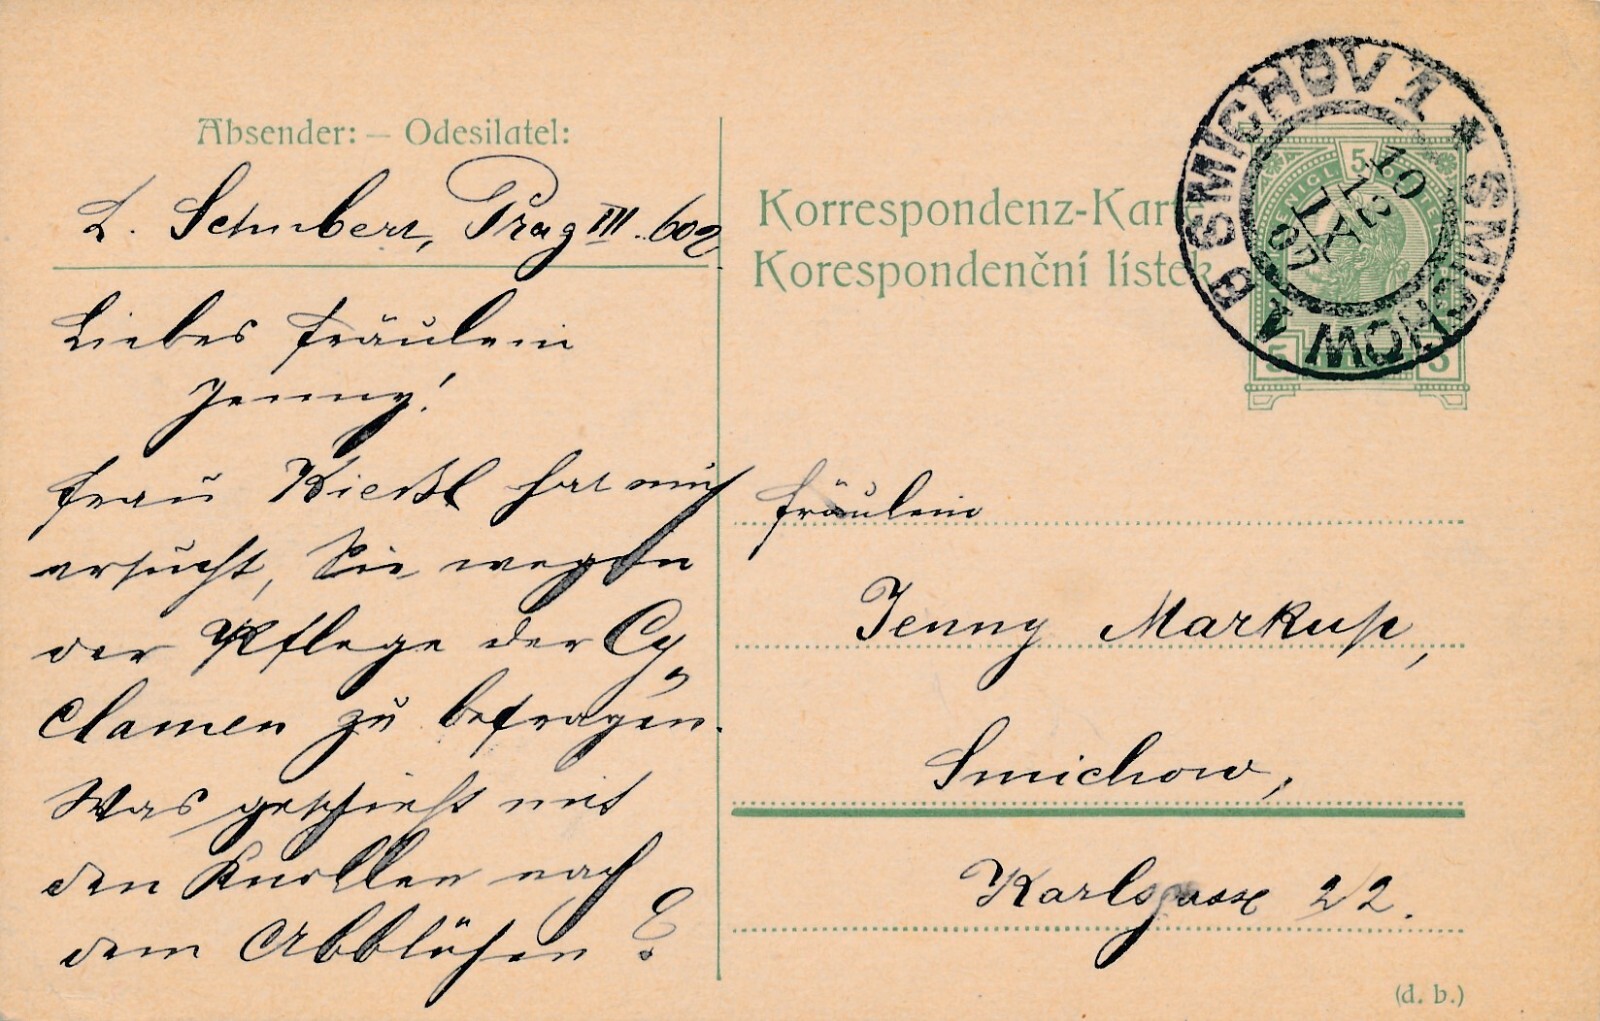 Absender: — Odesilatel:
L. Schubert, Prag III. 602
Liebes Fräulein
Jenny!
Frau Kiessl hat mich
ersucht, Sie wegen
der Pflege der Cy„
clamen zu befragen.
Was geschieht mit
den Knollen nach
dem Abblühen?
Korrespondenz-Karte
Korespondenční lístek
SMICHOV 1 * SMICHOW 1 B
10
12
IX
07
5
5 5
Fräulein
Jenny Markup,
Smichow,
Karlsgasse 22.
(d. b.)